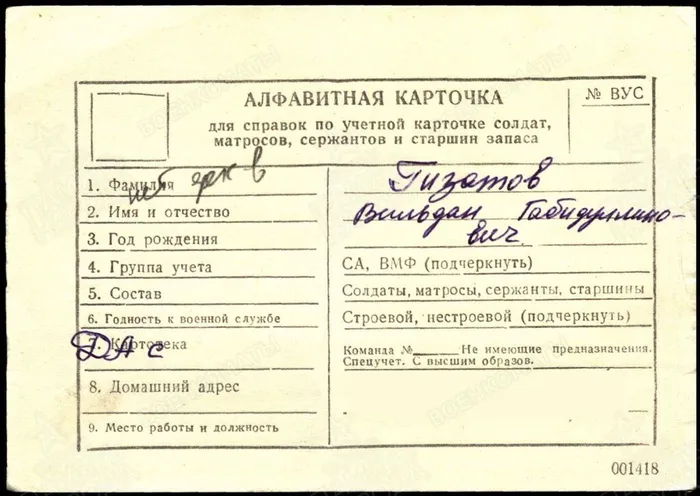 АЛФАВИТНАЯ КАРТОЧКА
№ ВУС
для справок по учетной карточке солдат,
матросов, сержантов и старшин запаса
1. Фамилия
Гизатов
2. Имя и отчество
Вильдан Габидуллино-
вич.
3. Год рождения
4. Группа учета
СА, ВМФ (подчеркнуть)
5. Состав
Солдаты, матросы, сержанты, старшины
6. Годность к военной службе
Строевой, нестроевой (подчеркнуть)
7. Картотека
Команда №______ Не имеющие предназначения.
Спецучет. С высшим образов.
8. Домашний адрес
9. Место работы и должность
001418